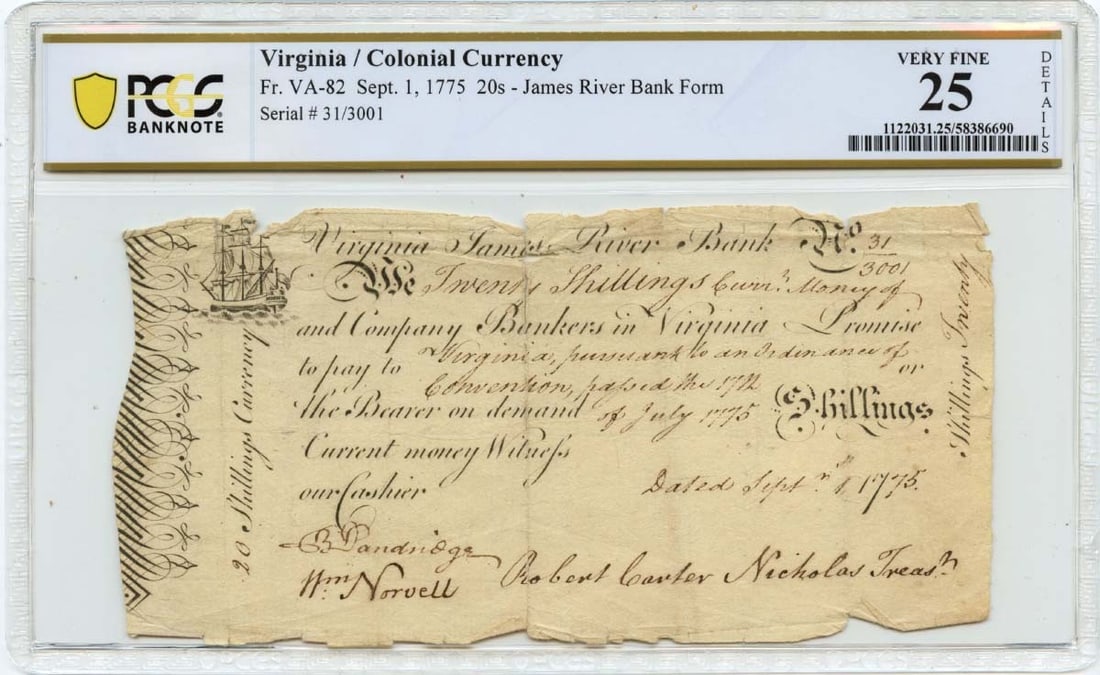 Virginia / Colonial Currency
Fr. VA-82 Sept. 1, 1775 20s - James River Bank Form
Serial # 31/3001
PCGS
BANKNOTE
VERY FINE
25
DETAILS
1122031.25/58386690
Virginia James River Bank No. 31
3001
We Twenty Shillings Curr.y Money of
and Company Bankers in Virginia Promise
to pay to Virginia, pursuant to an Ordinance of
Convention, passed the 17th or
the Bearer on demand of July 1775 Shillings
Current money Witness
our Cashier
Dated Sept.r 1 1775.
B Dandridge
Wm. Norvell
Robert Carter Nicholas Treas.r
20 Shillings Currency
Shillings Twenty